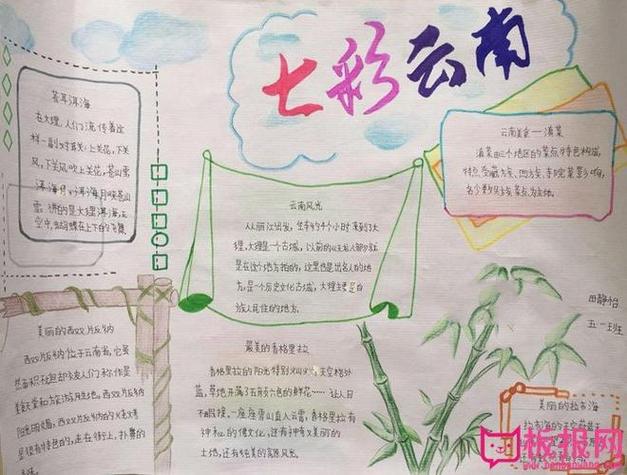 七彩云南
苍耳洱海
在大理，人们流传着这
样一副对
上关花，下关
风，下关风吹上关花，苍山雪
洱海月，洱海月映苍山
雪
的是大理洱海
云南美食一滇菜
滇菜由三个地区的菜点特色构成，
特点受藏族、回族、
菜影响，
各少数民族菜点为主体。
云南风光
人从丽江出发，坐车约4个小时来到大
理，大理是一个古城，以前的
是在这个地方拍的，这里也是出名人的地
方，是一个历史文化古城，大理主要是白
族人民住的地方。
田静怡
五一班
美丽的西双版纳
西双版纳位于云南省，它虽
然面积
却被人们称作是
美食
和旅游胜地。西双版
纳
是很有特色的，走在街上，扑鼻的
最美的香格里拉
香格里拉的阳光特别
，天空格外
蓝，草地开满了五颜六色的鲜花……让人目
不暇接，一座座雪山直入云霄，香格里拉有
神秘的佛文化，还有神奇又美丽的
土地，还有纯美的高原风光。
美丽的拉市海
拉市海的天空蔚蓝
板报网